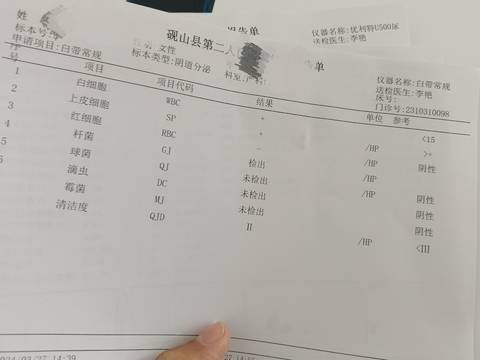 告单
仪器名称:优利特U500尿
送检医生:李艳
姓
砚山县第二人
告单
标本号
女性
标本类型:阴道分泌
仪器名称:白带常规
申请项目:白带常规
科室:产科
送检医生:李艳
床号:
门诊号:2310310098
序号 项目 项目代码 结果 单位 参考
1 白细胞 WBC + /HP <15
2 上皮细胞 SP + /HP >+
3 红细胞 RBC - /HP 阴性
4 杆菌 GJ 检出
5 球菌 QJ 未检出 阴性
6 滴虫 DC 未检出 阴性
霉菌 MJ 未检出 阴性
清洁度 QJD II /HP <III
14:39